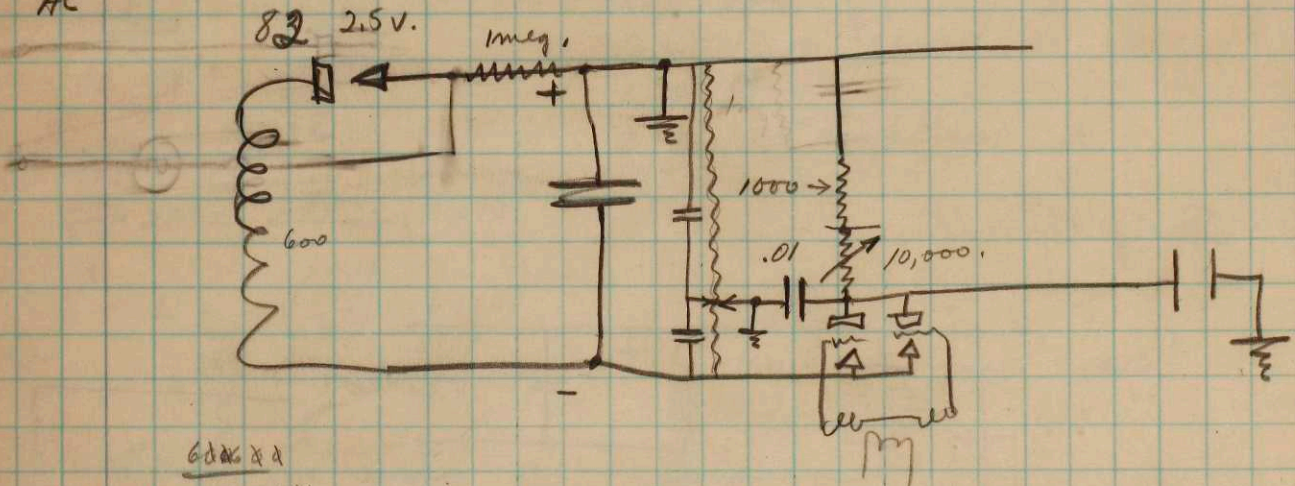 AC
82 2.5 v.
1 meg.
+
600
1000 →
.01
10,000.
-